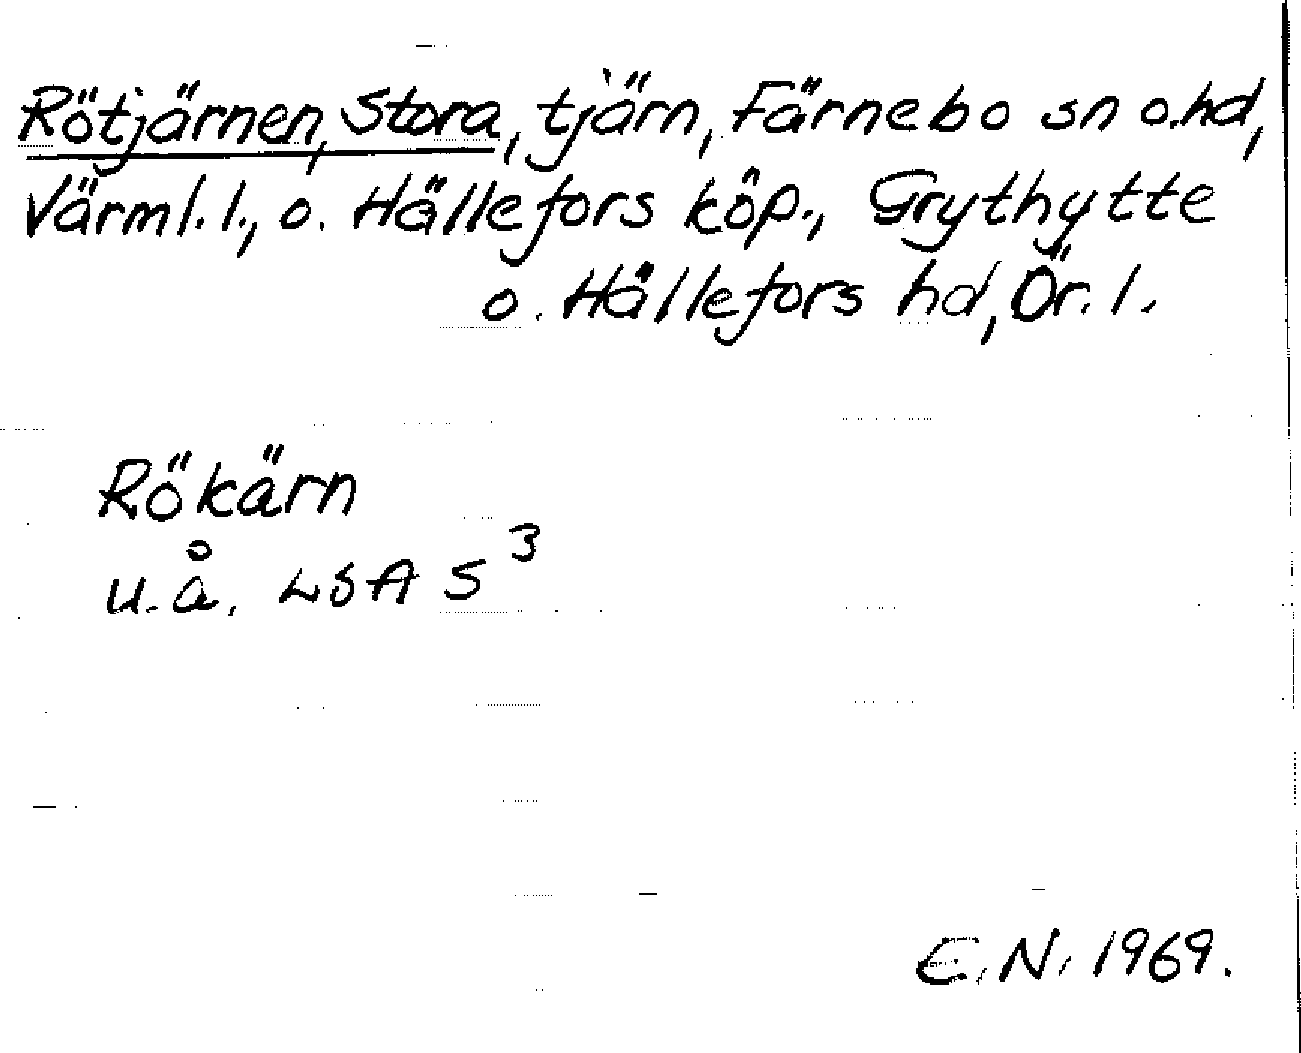 Rötjärnen, Stora, tjärn, Färnebo sn o. hd,
Värml. l., o. Hällefors köp., Grythytte
o. Hällefors hd, Ör. l.
Rökärn
u.å. LSA S 3
E.N. 1969.